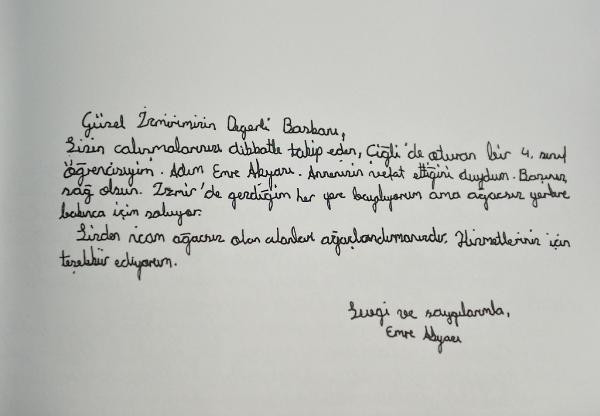 Güzel İzmirimizin Değerli Başkanı,
Sizin çalışmalarınızı dikkatle takip eden, Çiğli'de oturan bir 4. sınıf
öğrencisiyim. Adım Emre Akyarı. Annenizin vefat ettiğini duydum. Başınız
sağ olsun. İzmir'de gezdiğim her yere bayılıyorum ama ağaçsız yerlere
bakınca içim sızlıyor.
Sizden ricam ağaçsız olan alanları ağaçlandırmanızdır. Hizmetleriniz için
teşekkür ediyorum.
Sevgi ve saygılarımla,
Emre Akyarı